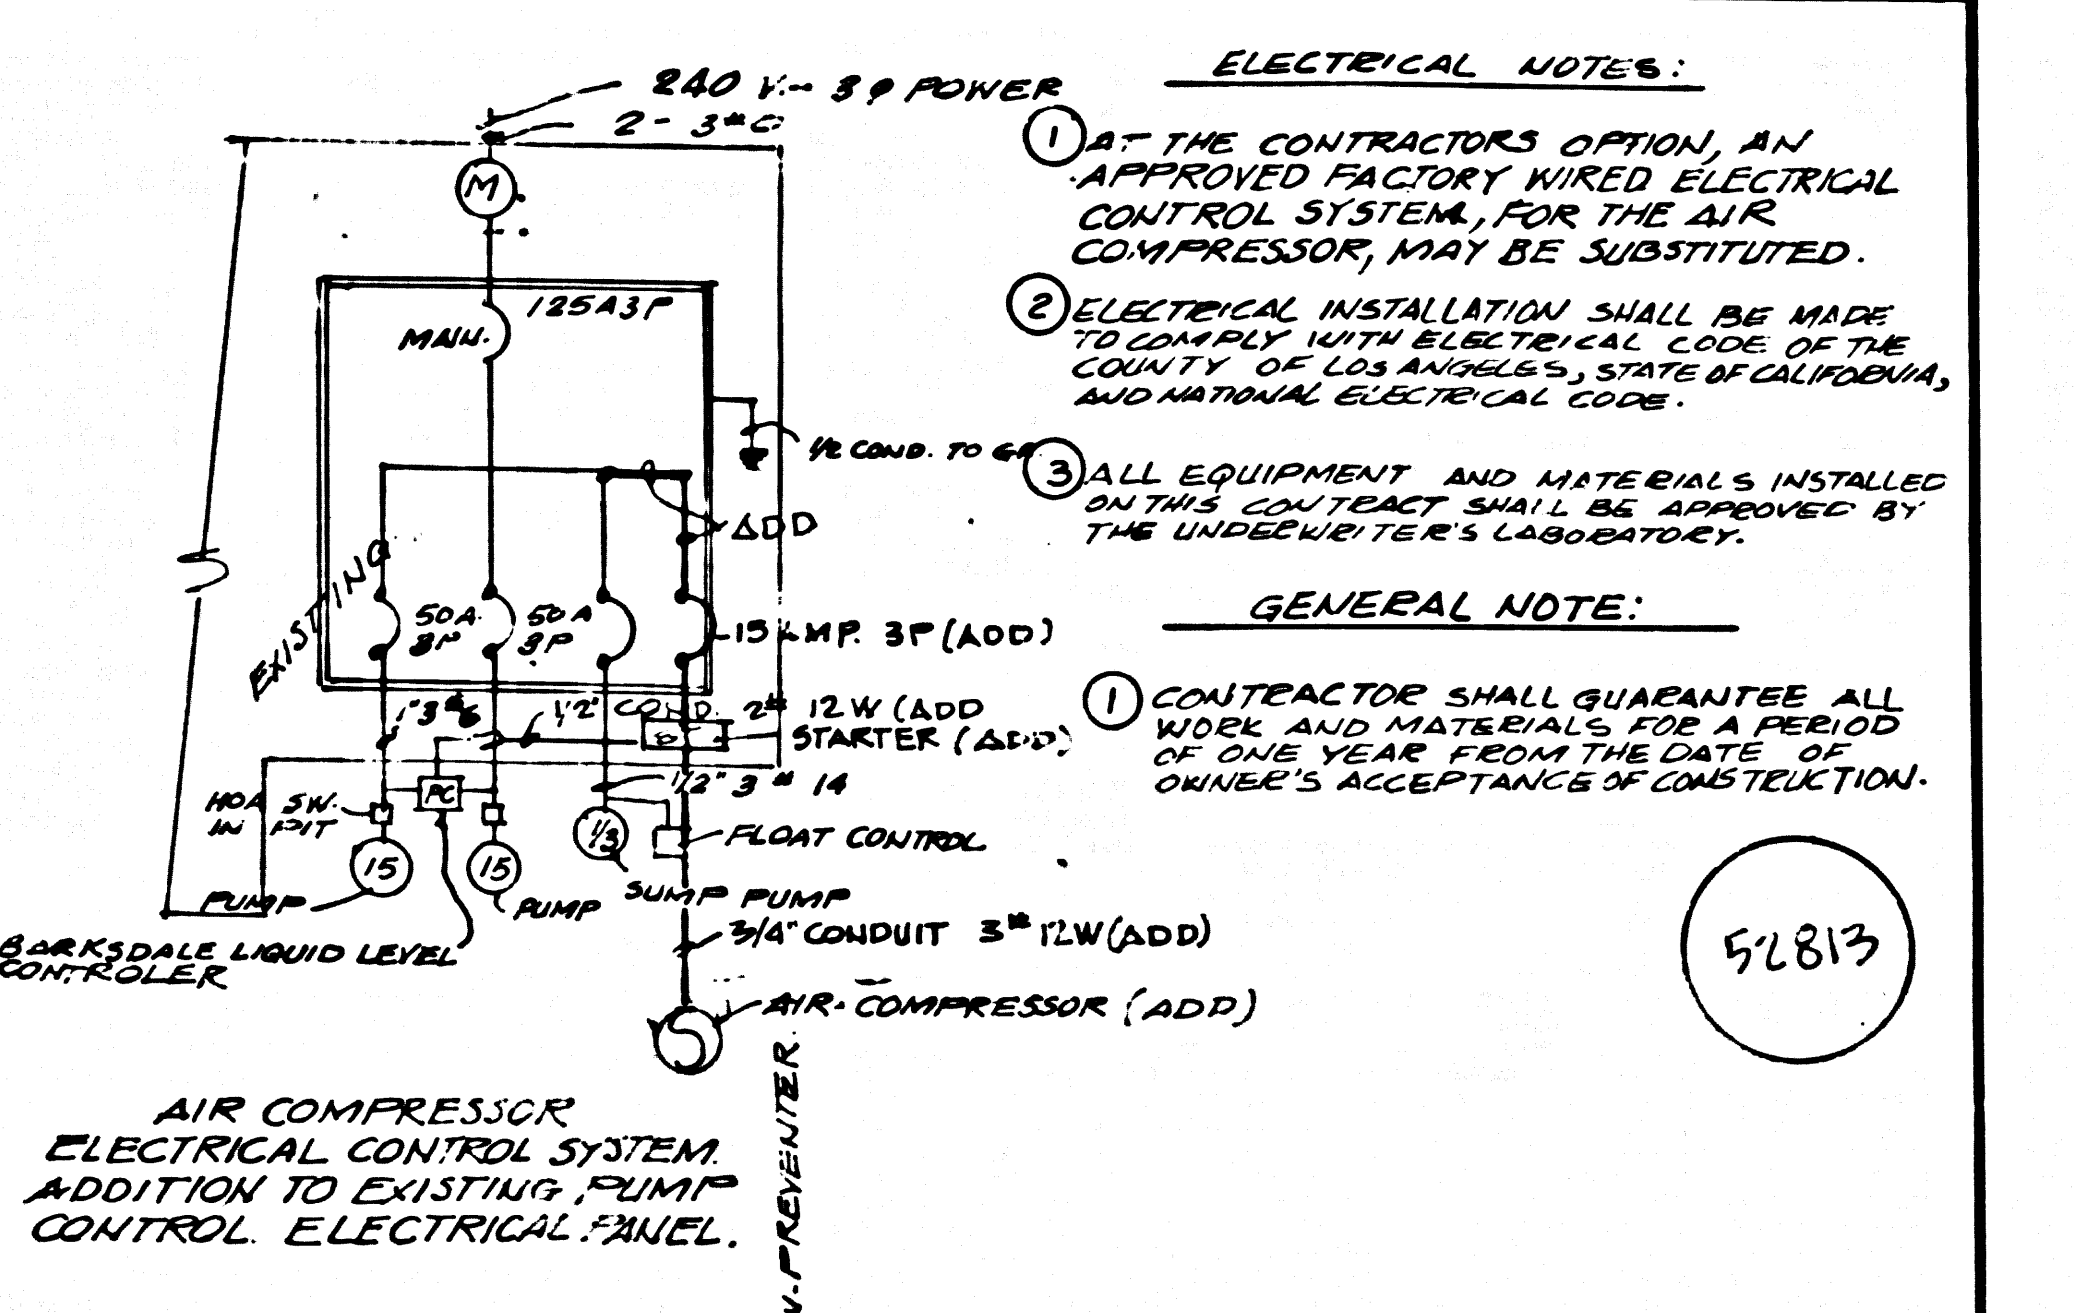 240 V. - 3 φ POWER
2 - 3 # C.
M
125A3P
MAIN.
1/2 COND. TO
ADD
EXISTING
50A. 3P
50A 3P
15 AMP. 3P (ADD)
1" 3 # 6
1/2" COND. 2 # 12 W (ADD
STARTER (ADD)
1/2" 3 # 14
PC
HOA SW.
IN PIT
15
15
1/3
FLOAT CONTROL
PUMP
PUMP
SUMP PUMP
3/4" CONDUIT 3 # 12W (ADD)
BARKSDALE LIQUID LEVEL
CONTROLER
AIR-COMPRESSOR (ADD)
AIR COMPRESSOR
ELECTRICAL CONTROL SYSTEM.
ADDITION TO EXISTING PUMP
CONTROL ELECTRICAL PANEL.
PREVENTER.
ELECTRICAL NOTES:
1 AT THE CONTRACTORS OPTION, AN
APPROVED FACTORY WIRED ELECTRICAL
CONTROL SYSTEM, FOR THE AIR
COMPRESSOR, MAY BE SUBSTITUTED.
2 ELECTRICAL INSTALLATION SHALL BE MADE
TO COMPLY WITH ELECTRICAL CODE OF THE
COUNTY OF LOS ANGELES, STATE OF CALIFORNIA,
AND NATIONAL ELECTRICAL CODE.
3 ALL EQUIPMENT AND MATERIALS INSTALLED
ON THIS CONTRACT SHALL BE APPROVED BY
THE UNDERWRITER'S LABORATORY.
GENERAL NOTE:
1 CONTRACTOR SHALL GUARANTEE ALL
WORK AND MATERIALS FOR A PERIOD
OF ONE YEAR FROM THE DATE OF
OWNER'S ACCEPTANCE OF CONSTRUCTION.
52813